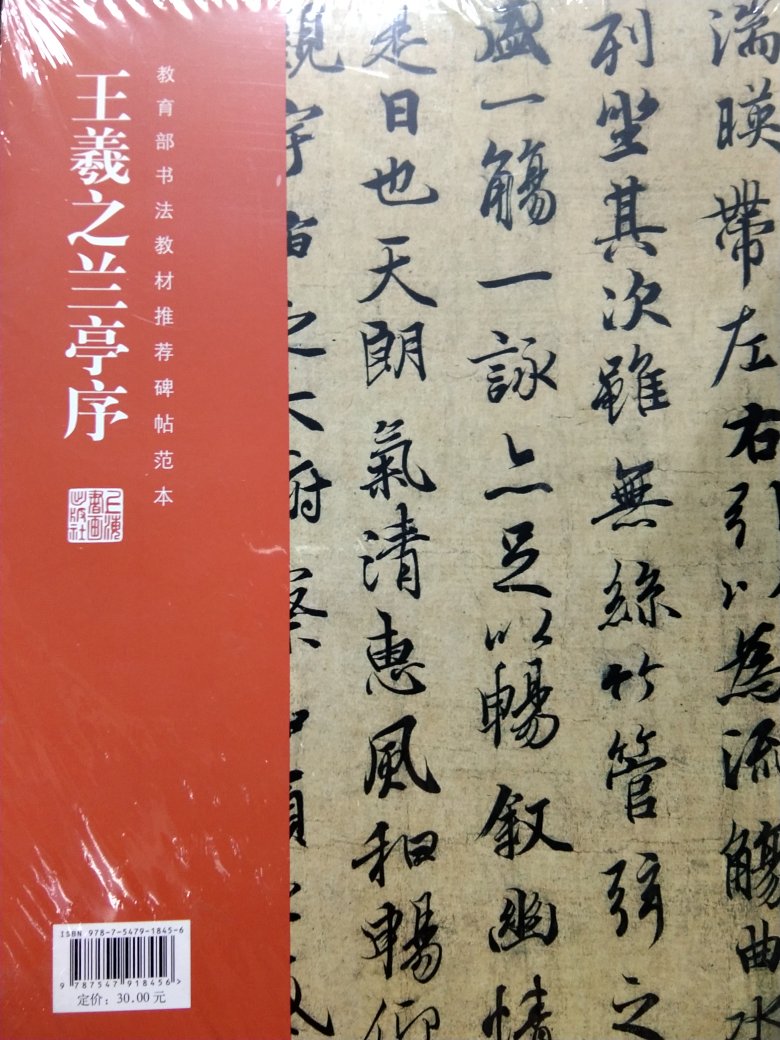 王羲之兰亭序
教育部书法教材推荐碑帖范本
上海
書画
出版社
湍暎帶左右引以為流觴曲水
列坐其次雖無絲竹管弦之
盛一觴一詠亦足以暢叙幽情
是日也天朗氣清惠風和暢仰
觀宇宙之大俯察品類之盛
ISBN 978-7-5479-1845-6
9 787547 918456 >
定价：30.00 元